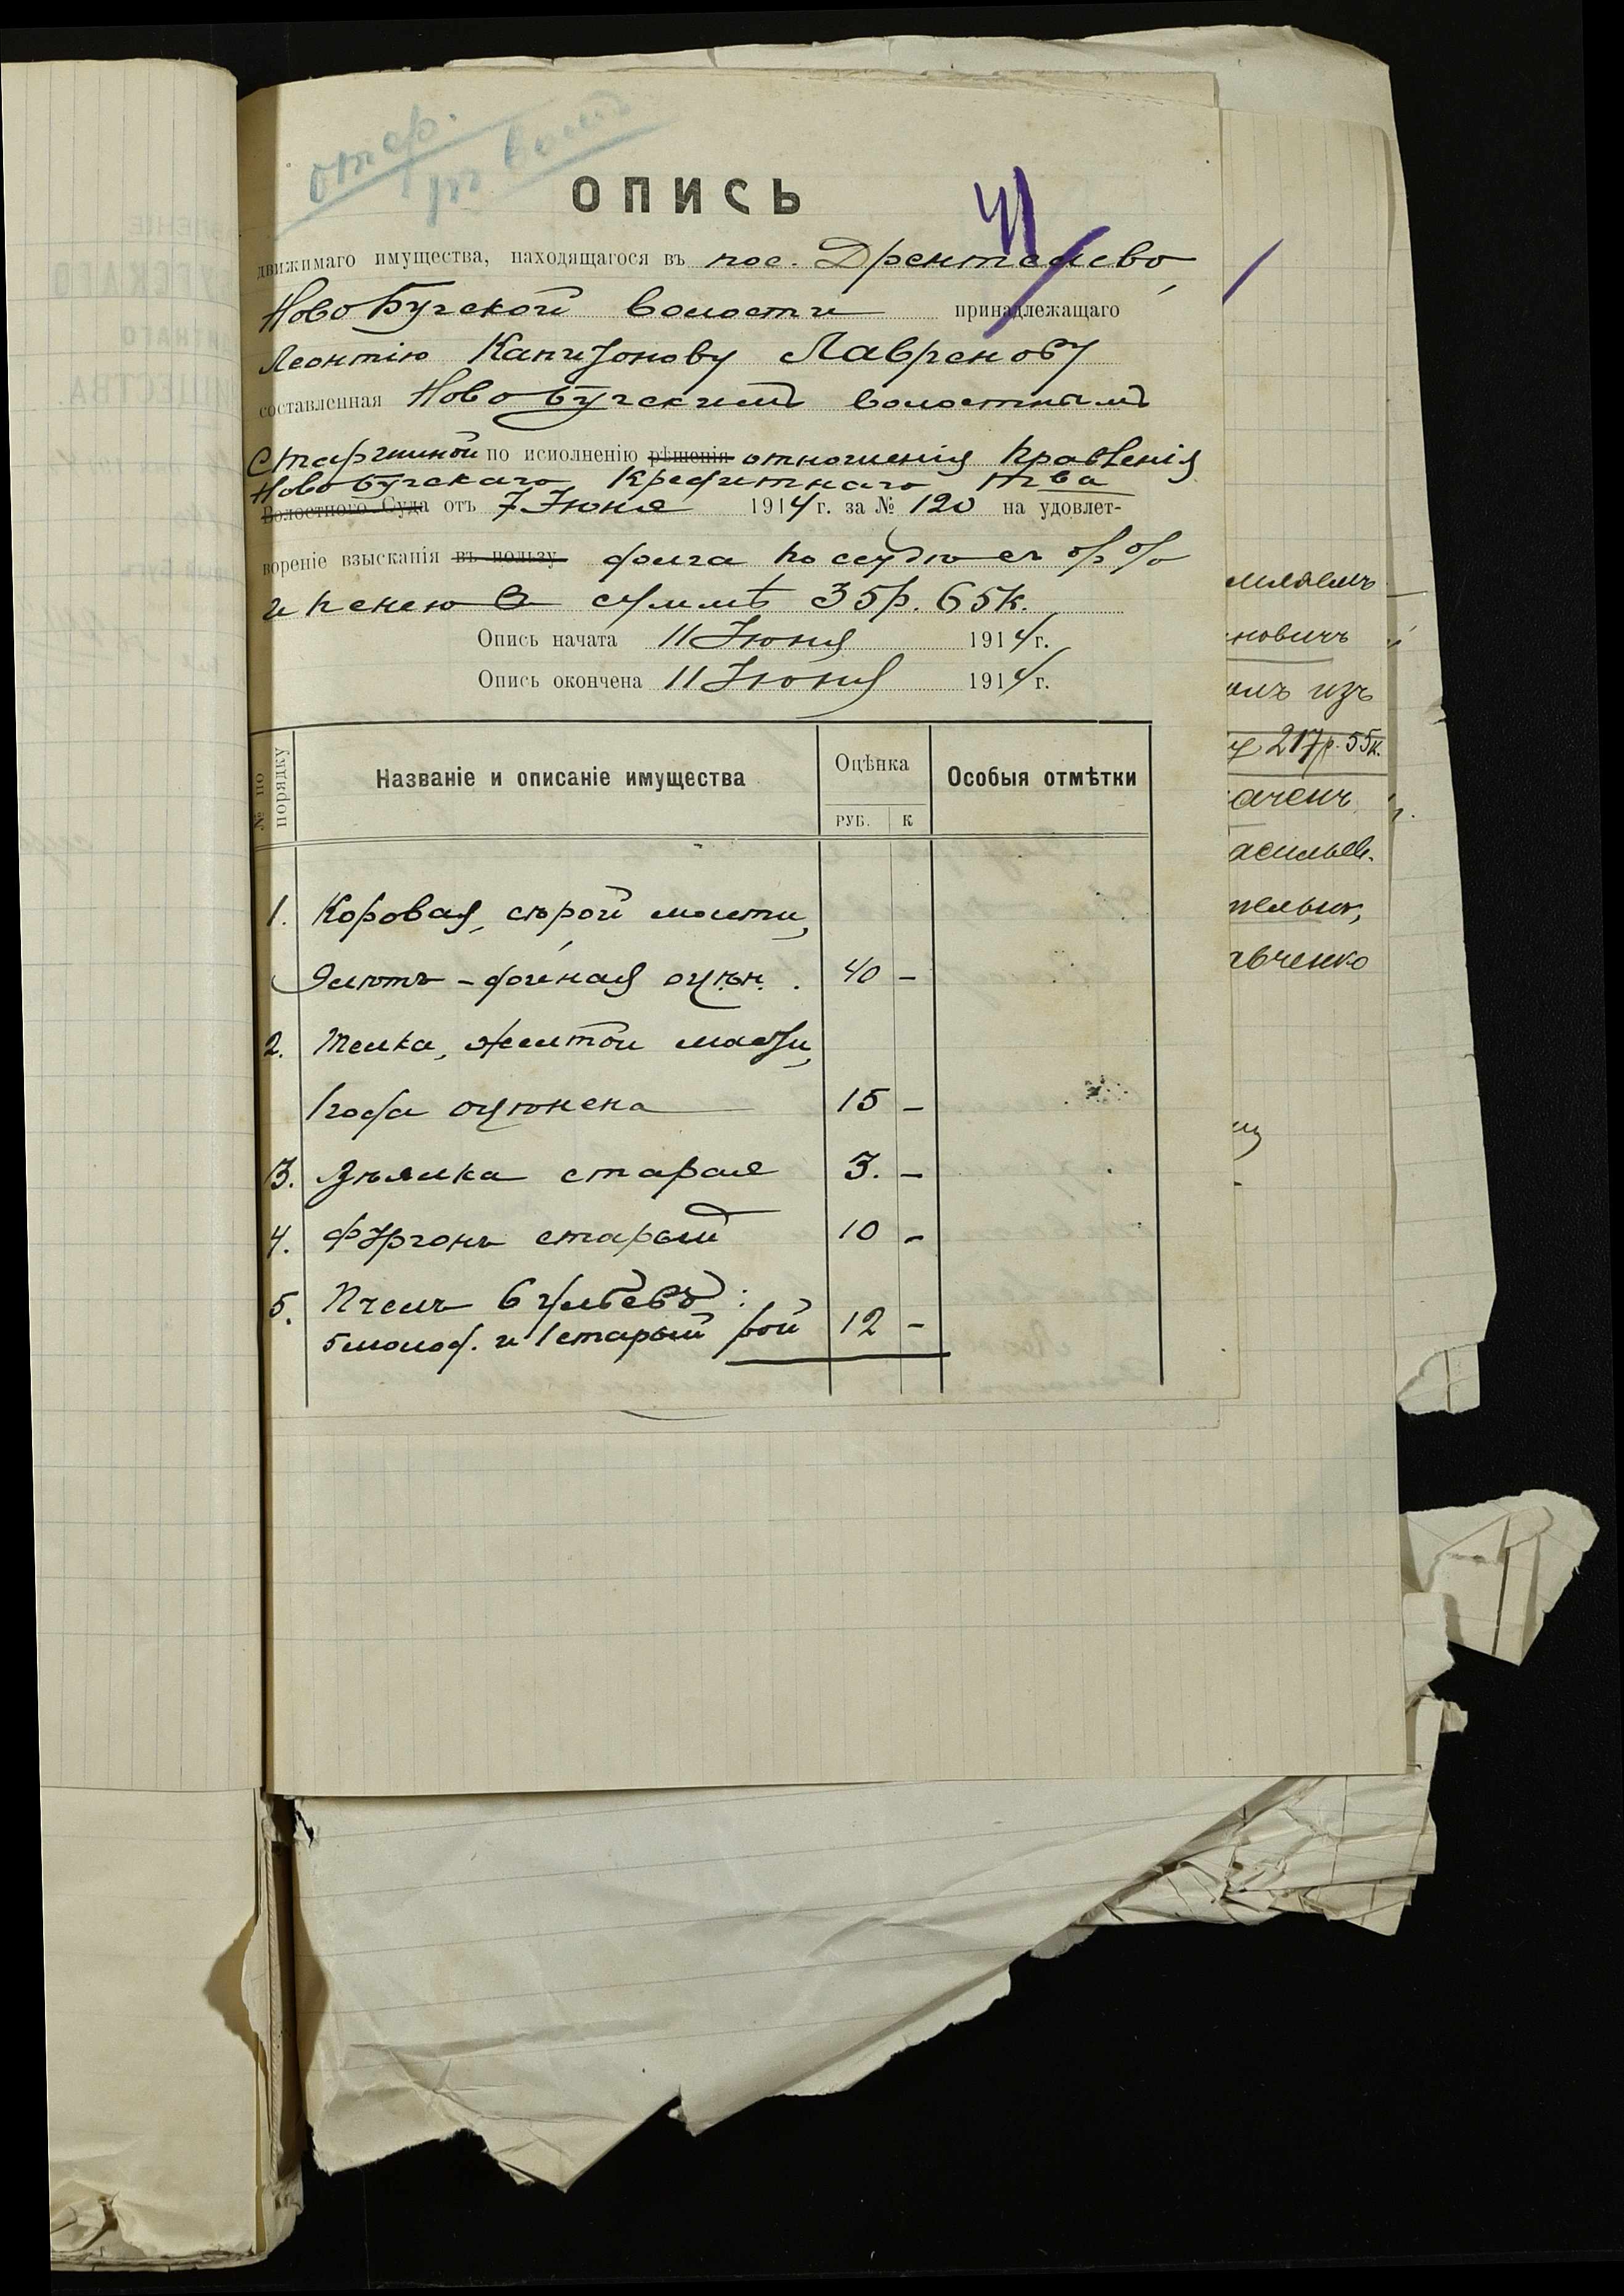 ОПИСЬ
движимаго имущества, находящагося въ пос. Дрентельево,
Ново Бугской волости принадлежащаго
Леонтію Капитонову Лавренову
составленная Ново Бугскимъ волостнымъ
Старшиной по исполненію рѣшенія отношенія Правленія
Ново Бугскаго Кредитнаго Т-ва
Волостного Суда отъ 7 Іюня 1914 г. за № 120 на удовлет-
вореніе взысканія въ пользу долга по ссудѣ съ %%
и пенею въ суммѣ 35р. 65к.
Опись начата 11 Іюня 1914 г.
Опись окончена 11 Іюня 1914 г.
№ по порядку
Названіе и описаніе имущества
Оцѣнка
РУБ. К
Особыя отмѣтки
1. Корова, сѣрой масти,
лѣтъ - дойная оцѣн. 40 -
2. Телка, желтой масти,
1 года оцѣнена 15 -
3. Вѣялка старая 3. -
4. Фургонъ старый 10 -
5. Пчелъ 6 ульевъ:
5 молод. и 1 старый рой 12 -
новичъ
изъ
217р. 55к.